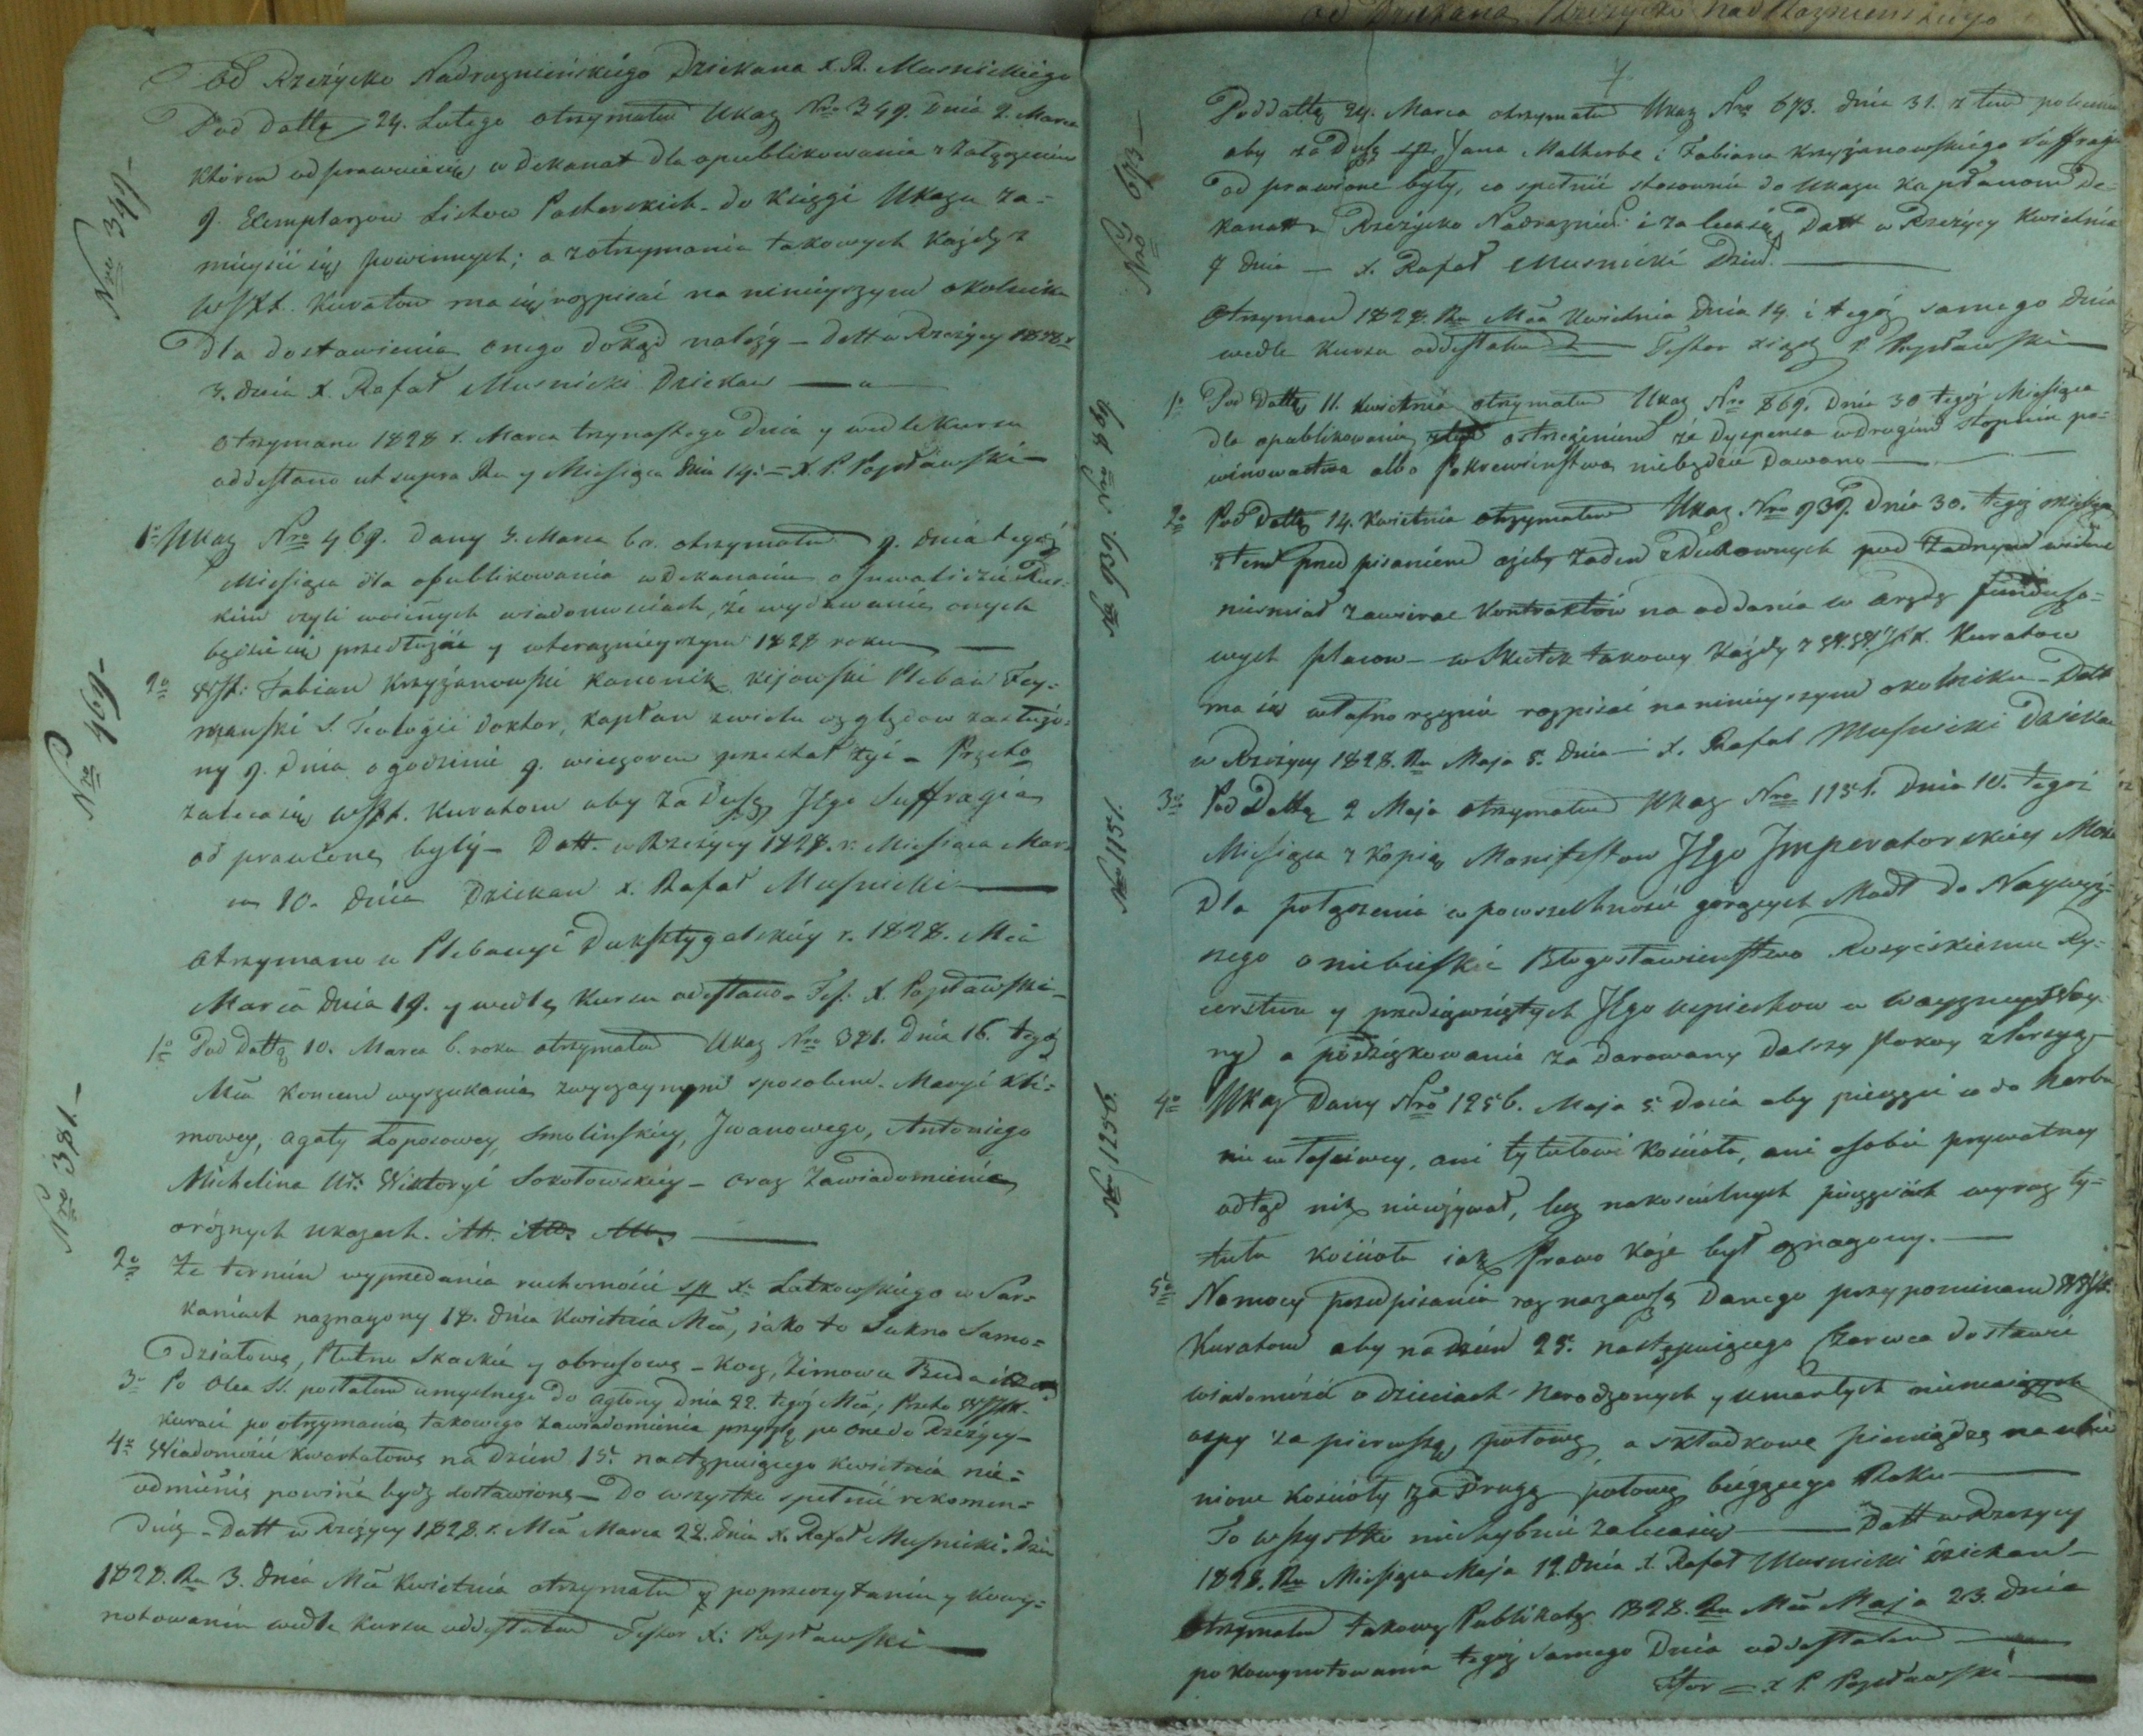 od Dziekana Rzeżycko Nadrazninskiego
Od Rzeżycko Nadraznińskiego Dziekana X. R. Musnickiego
Pod dattą 24. Lutego otrzymałem Ukaz Nro 349. dnia 2. Marca
którem od prawuieśię w Dekanat dla opublikowania z załączeniem
9. Exemplarzow Listow Pasterskich do Księgi Ukazu za-
mieyśić się powinnych; a zotrzymania takowych każdy z
WJXX. Kuratow ma się rozpisać na ninieyszym okolniku
Dla dostawienia onego dokąd należy – Datt w Rzeżycy 1828 r.
3. dnia X. Rafał Musnicki Dziekan
Nro 349.
Otrzymane 1828 r. Marca trzynastego dnia y wedle Kursu
oddesłano ut supra Ru y Miesiąca dnia 14. = X. P. Popławski
1o Ukaz Nro 469. dany 3. Marca b.r. otrzymałem 9. dnia tegoż
Miesiąca dla opublikowania w Dekanacie o Inwalidzie Rus-
kim czyli woiennych wiadomościach, że wydawanie onych
będzie się przedłużać y wterazniejszym 1828 roku
2o WJX: Fabian Krzyżanowski Kanonik Kijowski Pleban Fey-
mański S. Teologii Doktor, Kapłan zwielu względow zasłużo-
ny 9. dnia o godzinie 9. wieczorem przestał żyć – Przeto
zaleca się WJXX. Kuratom aby za Duszę Jego Suffragia
od prawione były – Datt. w Rzeżycy 1828. r. Miesiąca Mar-
ca 10. dnia Dziekan X. Rafał Musnicki
Nro 469
Otrzymano w Plebanyi Duksztygalskiéy r. 1828. Mca
Marca dnia 19. y wedle Kursu odesłano. Tes: X. Popławski
1o Pod dattą 10. Marca b. roku otrzymałem Ukaz Nro 381. dnia 16. tegoż
Mca koncem wyszukania zwyczaynym sposobem. Maryi Kli-
mowey, Agaty Łoposowey, Smolinskiéy, Jwanowego, Antoniego
Michelina Ur. Wiktoryi Sokołowskiéy – oraz zawiadomienie
oróżnych ukazach.
Nro 381.
2o Że termin wyprzedania ruchomości sp X. Łatkowskiego w Sar-
kaniach naznaczony 18. dnia Kwietnia Mca, iako to Sukno Samo-
działowe, Płutno Skackie y obrusowe – Kocz, Zimowa Buda
3o Po Olea SS. posłałem umyslnego do Agłony dnia 22. tegoż Mca; Przeto WJXX.
Kuraci po otrzymaniu takowego zawiadomienia przyszlą po one do Rzeżycy –
4o Wiadomości Kwartałowe na dzień 15. następuiącego Kwietnia nie-
odmienie powinne bydź dostawione – Do wszystko spełnić rekomen-
duię – Datt w Rzeżycy 1828. r. Mca Marca 22. dnia X. Rafał Musnicki Dzie
1828. Ru 3. dnia Mca Kwietnia otrzymałem y poprzeczytaniu y Kowy-
notowaniu wedle Kursu oddesłałem Testor X. Popławski
7
Pod dattą 24. Marca otrzymałem Ukaz Nro 673. dnia 31. z tem poleceniem
aby za Duszę sp. Jana Malherbe i Fabiana Krzyżanowskiego Suffragia
od prawione były, co spełnić stosownie do Ukazu Kapłanom De-
kanatu Rzeżycko Nadraznień. i zaleca się Datt w Rzeżycy Kwietnia
7 dnia – X. Rafał Musnicki Dzie.
Nro 673
Otrzyman 1828. Ru Mca Kwietnia dnia 14. i tegoż samego dnia
wedle Kursu oddesłałem Testor Xiądz P. Popławski
1o Pod dattą 11. Kwietnia otrzymałem Ukaz Nro 869. dnia 30 tegoż Miesiąca
dla opublikowania ostrzeżeniem że Dyspensa wdrugim stopniu po-
winowactwa albo Pokrewieństwa niebędzie dawano
Nro 869.
2o Pod dattą 14. Kwietnia otrzymałem Ukaz Nro 939. dnia 30. tegoż miesiąca
z tem przed pisaniem ażeby żaden z Duchownych pod żadnym widem
nieśmiał zawierać Kontraktów na oddania w arędę funduszo-
wych placow – w skutek takowy każdy z WW. JXX. Kuratow
ma się własnoręcznie rozpisać na ninieyszym okolniku – Datt
w Rzeżycy 1828. Ru Maja 5. dnia – X. Rafał Musnicki Dziekan
Nro 939.
3o Pod Dattą 2 Maja otrzymałem Ukaz Nro 1151. dnia 10. tegoż
Miesiąca z kopią Manifestow Jego Jmperatorskiéy Mości
Dla połączenia w powszechności gorących Modł do Naywyż-
szego o niebieskie Błogosławieństwo Rosyiskiemu Ry-
cerstwu y przedsięwziętych Jego uspiechow w
ny a podziękowania za darowany dalszy Pokoy z Persyą
Nro 1151.
4o Ukaz Dany Nro 1256. Maja 5. dnia aby pieczęci w do herbu
nie właściwey, ani tytułowi Kościoła, ani osobie prywatney
odtąd nikt nieużywał, lecz nakoscielnych pieczęciach wyraz ty-
tułu Kościoła iak Prawo Każe był oznaczony.
Nro 1256.
5o Na mocy przedpisania raz nazawsze danego przypominam WWJXX.
Kuratom aby na dzień 25. następuiącego Czerwca dostawić
wiadomości o dzieciach Narodzonych y umarłych niemaiących
ospy za pierwszą połowę, a składkowe pieniądze na
nione Kościoły za drugą połowę bieżącego Roku
To wszystko niechybnie zaleca się – Datt w Rzeżycy
1828. Ru Miesiąca Maja 12. dnia X. Rafał Musnicki dziekan
Otrzymałem takowy Publikatę 1828. Ru Mca Maja 23. dnia
po Kowynotowaniu tegoż samego dnia oddesłałem
Testor = X P. Popławski